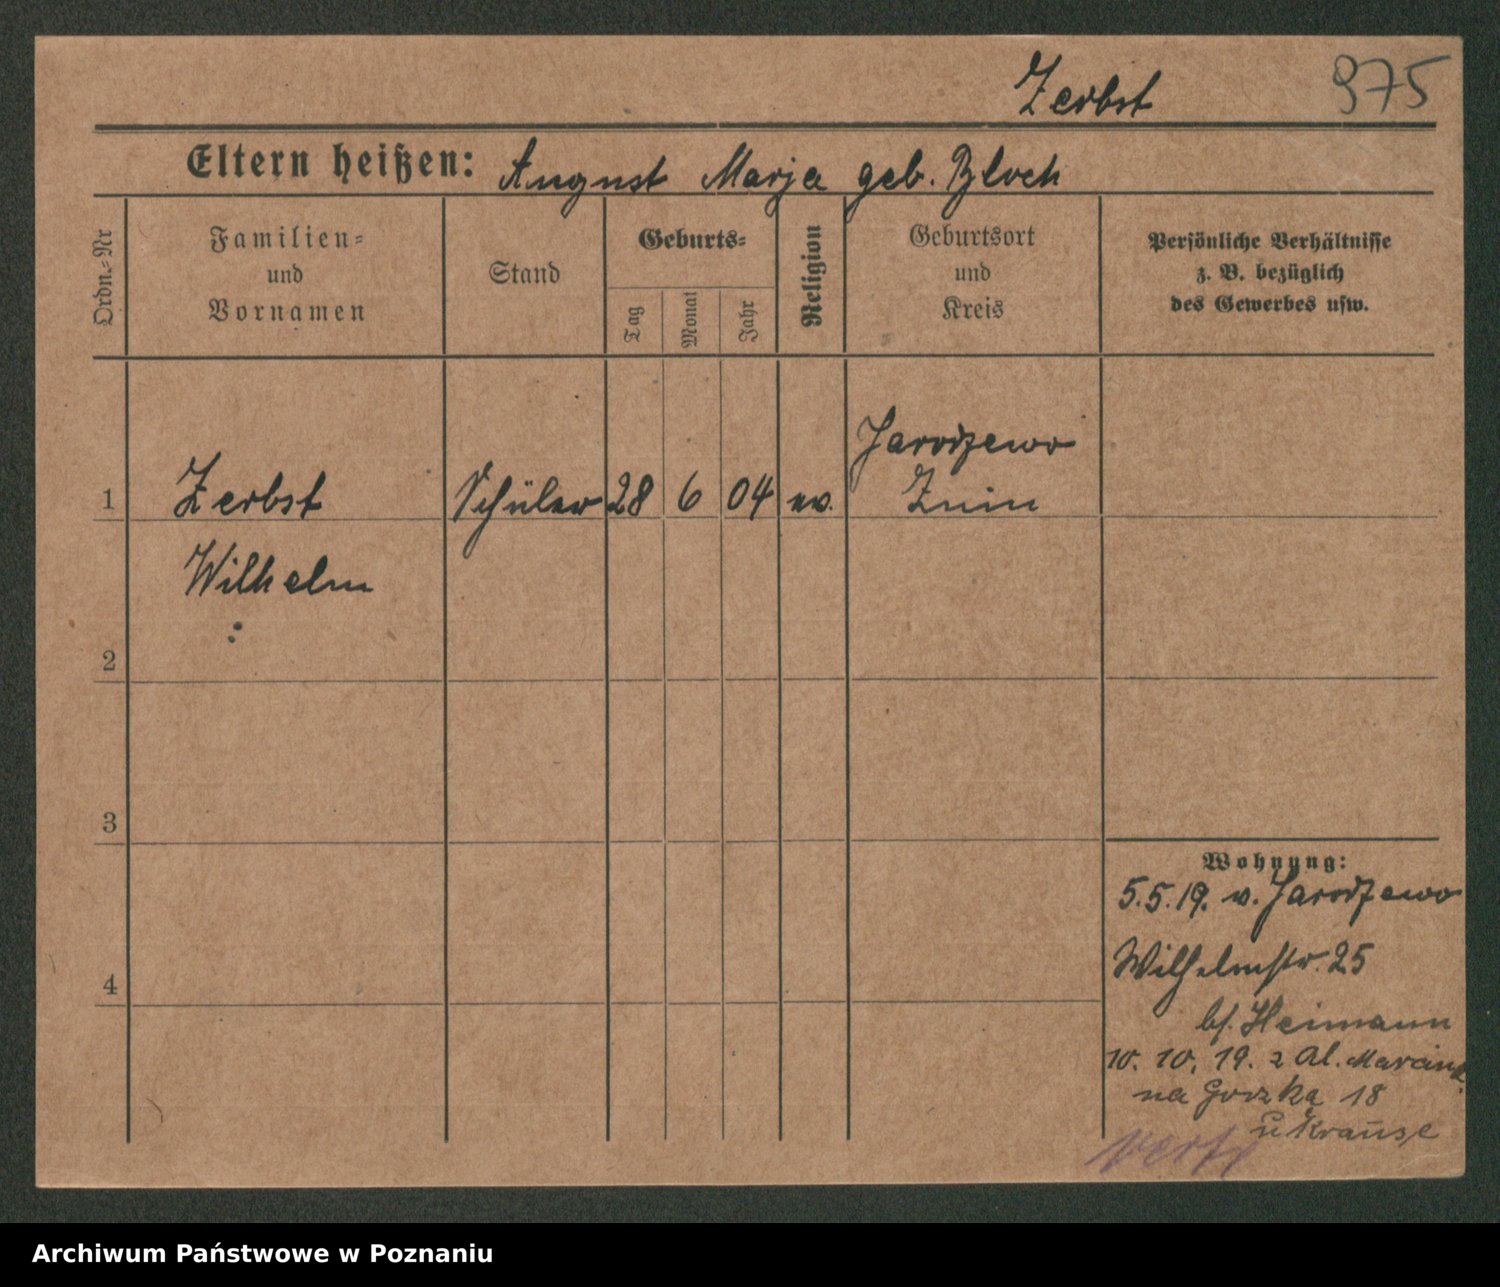 Zerbst 975
Eltern heißen: August Marja geb. Bloch
Ordn.-Nr
Familien-
und
Vornamen
Stand
Geburts-
Tag
Monat
Jahr
Religion
Geburtsort
und
Kreis
Persönliche Verhältnisse
z. B. bezüglich
des Gewerbes usw.
Jarodzewo
1 Zerbst Schüler 28 6 04 ev. Znin
Wilhelm
2
3
4
Wohnung:
5.5.19. v. Jarodzewo
Wilhelmstr. 25
bf. Heimann
10. 10. 19. z Al. Marcink.
na Gorzka 18
u Krause
Archiwum Państwowe w Poznaniu